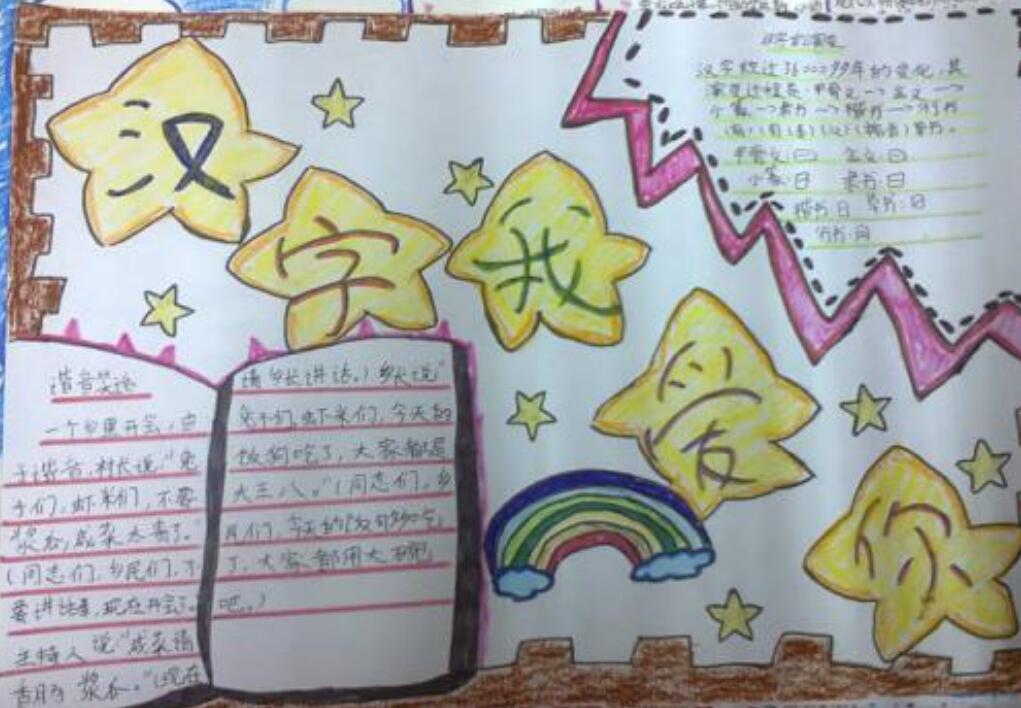 汉字我爱你
汉字的演变
汉字经过360099年的变化,其
演变过程是:甲骨文→金文→
小篆→隶书→楷书→行书
草书。
甲骨文: 金文:
小篆:日 隶书:日
楷书:日 草书:日
行书:
谐音笑话
一个乡里开会,由
于谐音,村长说:“兔
子们,虾米们,不要
浆瓜,咸菜太贵了。”
(同志们,乡民们,不
要讲话,现在开会了。)
主持人说:“咸菜请
香肠浆瓜。”(现在
请乡长讲话。)乡长说:“
兔子们,虾米们,今天的
饭狗吃了,大家都是
大王八。”(同志们,乡
民们,今天的饭够吃
了,大家都用大碗
吧。)